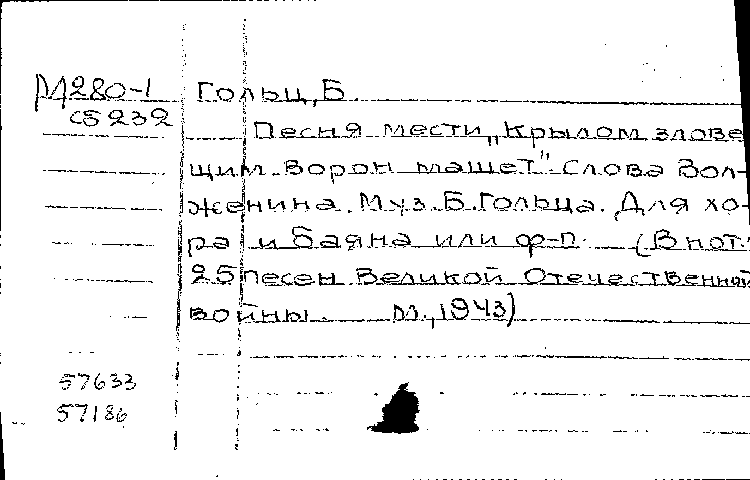 М280-1 Гольц, Б
сб 232 Песня мести „Крылом злове
щим ворон машет". Слова Вол-
женина. Муз. Б. Гольца. Для хо-
ра и баяна или ф-п. (В нот.:
25 песен Великой Отечественной
войны. М., 1943)
57633
57186